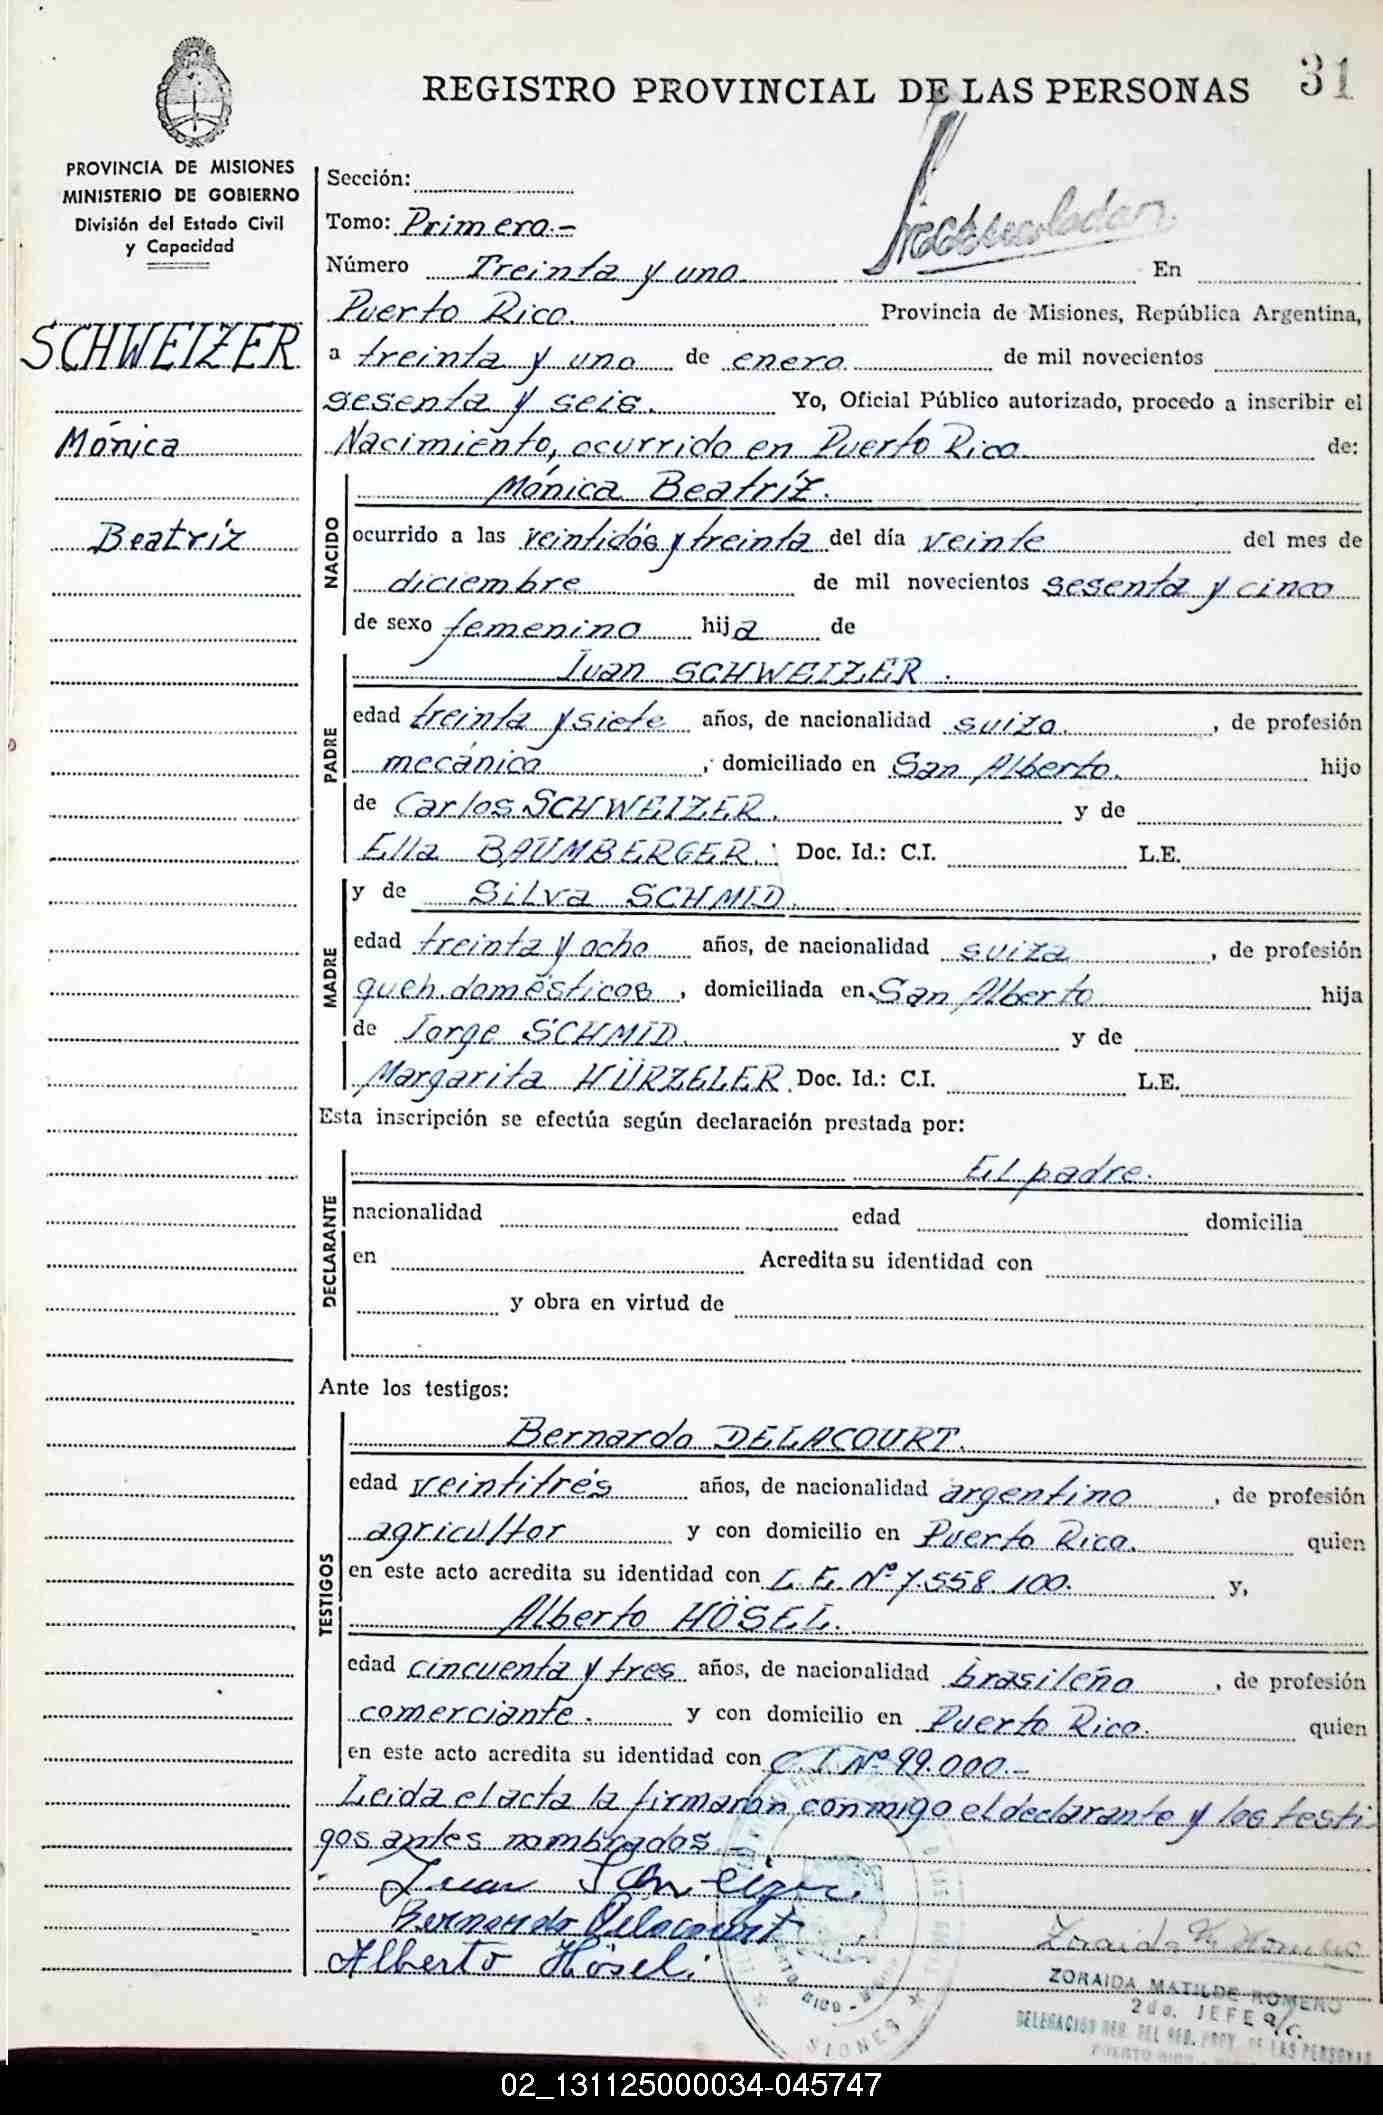 REGISTRO PROVINCIAL DE LAS PERSONAS 31
PROVINCIA DE MISIONES
MINISTERIO DE GOBIERNO
División del Estado Civil
y Capacidad
SCHWEIZER
Mónica
Beatríz
Sección:
Tomo: Primero.-
Número Treinta y uno En
Puerto Rico. Provincia de Misiones, República Argentina,
a treinta y uno de enero de mil novecientos
sesenta y seis. Yo, Oficial Público autorizado, procedo a inscribir el
Nacimiento, ocurrido en Puerto Rico de:
NACIDO
Mónica Beatríz.
ocurrido a las veintidós y treinta del día veinte del mes de
diciembre de mil novecientos sesenta y cinco
de sexo femenino hija de
PADRE
Juan SCHWEIZER.
edad treinta y siete años, de nacionalidad suizo, de profesión
mecánico, domiciliado en San Alberto. hijo
de Carlos SCHWEIZER. y de
Ella BAUMBERGER. Doc. Id.: C.I. L.E.
MADRE
y de Silva SCHMID.
edad treinta y ocho años, de nacionalidad suiza, de profesión
queh. domésticos, domiciliada en San Alberto hija
de Jorge SCHMID. y de
Margarita HÜRZELER. Doc. Id.: C.I. L.E.
Esta inscripción se efectúa según declaración prestada por:
DECLARANTE
El padre.
nacionalidad edad domicilia
en Acredita su identidad con
y obra en virtud de
Ante los testigos:
TESTIGOS
Bernardo DELACOURT.
edad veintitrés años, de nacionalidad argentino, de profesión
agricultor y con domicilio en Puerto Rico. quien
en este acto acredita su identidad con L.E. Nº 7.558.100. y,
Alberto HÖSEL.
edad cincuenta y tres años, de nacionalidad brasileño, de profesión
comerciante. y con domicilio en Puerto Rico. quien
en este acto acredita su identidad con C.I. Nº 99.000.-
Leida el acta la firmaron conmigo el declarante y los testi
gos antes nombrados.-
Juan Schweizer
Bernardo Delacourt
Alberto Hösel.
ZORAIDA MATILDE ROMERO
2do. JEFE a/c.
DELEGACION REG. DEL REG. PROV. DE LAS PERSONAS
PUERTO RICO
02_131125000034-045747